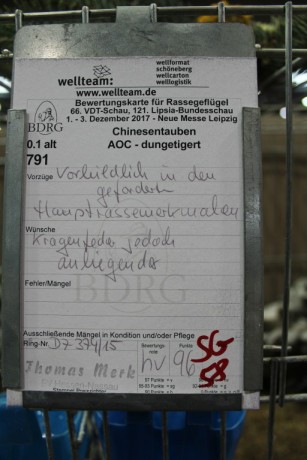 wellteam:
wellformat
schöneberg
wellcarton
welllogistik
www.wellteam.de
Bewertungskarte für Rassegeflügel
66. VDT-Schau, 121. Lipsia-Bundesschau
1. - 3. Dezember 2017 - Neue Messe Leipzig
BDRG
Chinesentauben
0.1 alt
AOC - dungetigert
791
Vorzüge
Vorbildlich in den
geforderten
Hauptrassemerkmalen
Wünsche
Kragenfeder jedoch
anliegender
Fehler/Mängel
BDRG
Ausschließende Mängel in Kondition und/oder Pflege
Ring-Nr.
DZ 374/15
Bewertungs-
note
hv
Punkte
96
SG
58
Thomas Merk
LV Hessen-Nassau
97 Punkte = v